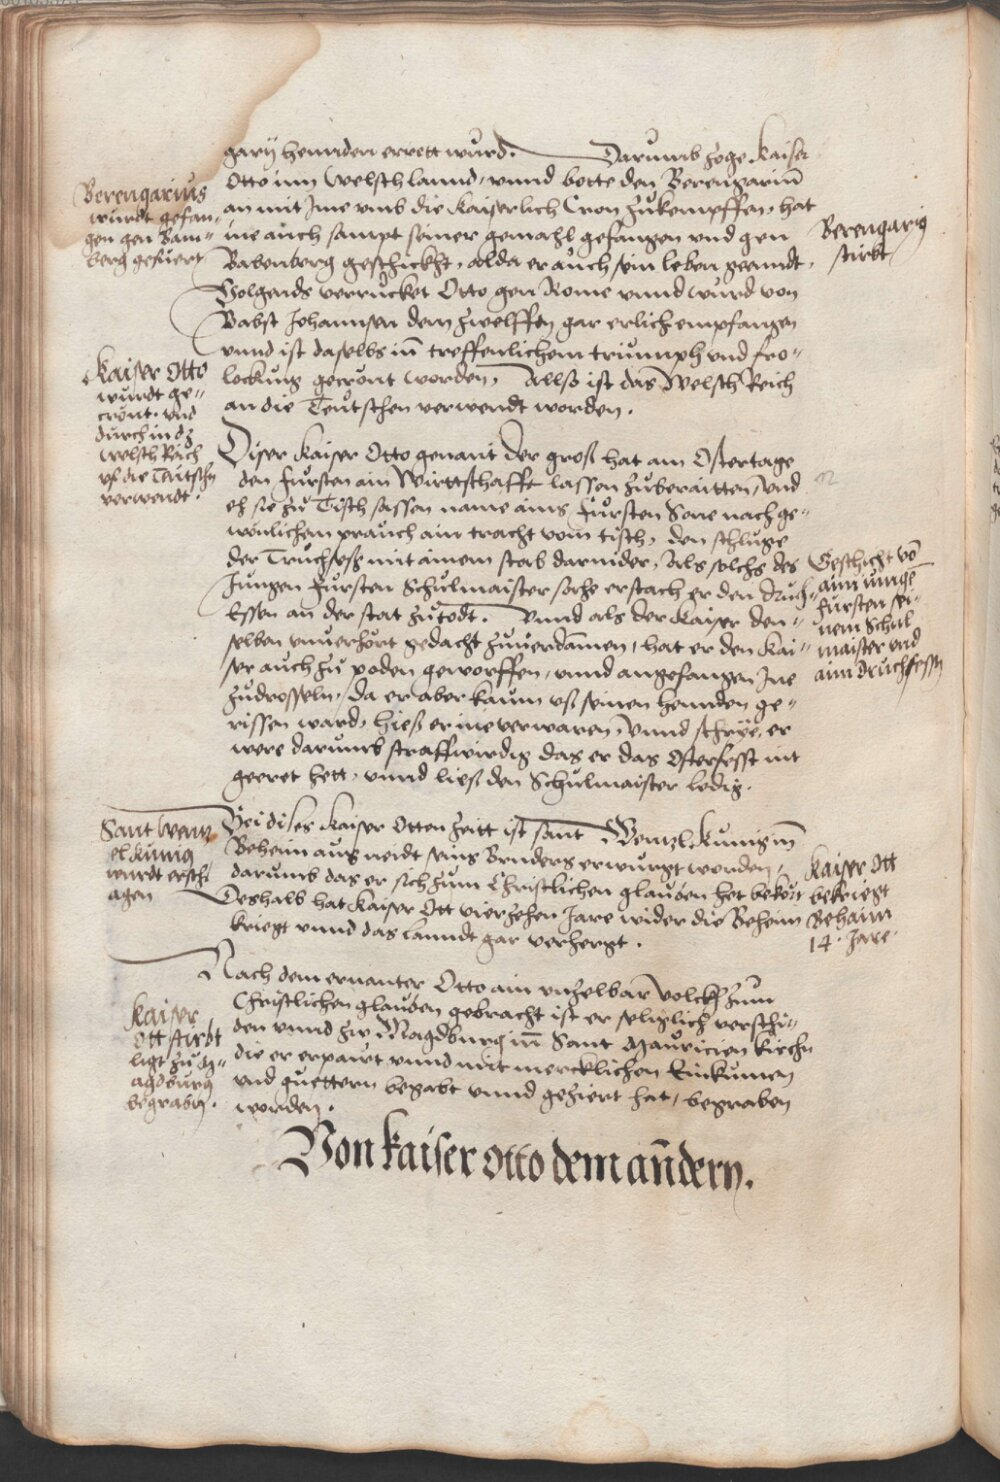 garij hennden errett wurd. Darumb zoge Kaiser
Otto inn Welsch lannd, vnnd botte den Berengariu͂
an mit Ime vmb die Kaiserlich Cron zukempffen, hat
ine auch sampt seiner gemahl gefangen vnd gen
Babenberg geschickht, alda er auch sein leben geenndt.
Volgends verrucket Otto gen Rome vnnd wurd von
Babst Johannsen dem zwelfften gar erlich empfangen
vnnd ist daselbs in͂ treffenlichem triumph vnd fro-
lockung gecrönt worden, Allso ist das Welsch Reich
an die Teutschen verwendt worden.
Berengarius
wurdt gefan-
gen gen Bam-
berg gefuert
Berengarig
stirbt
Kaiser Otto
wurdt ge-
crönt. vnd
durch in dz
Welsch Reich
vf die Teutschn
verwendt.
Diser Kaiser Otto genant der groß hat am Ostertage
den fursten ain Wirttschafft lassen zuberaitten, vnd
eh sie zu Tisch sassen name ains fursten Sone nach ge-
wonlichem prauch ain tracht vom tisch, den schluge
der Truchseß mit ainem stab darnider, Als solchs des
Jungen fursten Schulmaister sahe erstach er den Druch-
sessen an der stat zutodt. Vnnd als der Kaiser den-
selben vnuerhort gedacht zuuerdam͂en, hat er den Kai-
ser auch zu poden geworffen, vnnd angefangen Ine
zudrosseln, Da er aber kaum uß seinen hennden ge-
rissen ward, hieß er ine verwaren, Vnnd schrye, er
were darumb straffwirdig das er das Osterfesst nit
geeret hett, vnnd ließ den Schulmaister ledig.
Geschicht vo͂
aim iunge͂
fursten sei-
nem Schul
maister vnd
aim druchsessn
Bei dises Kaiser Otten zeitt ist sant Wenzl Kunig in͂
Beheim aus neidt seins Bruders erwurgt worden,
darumb das er sich zum Christlichen glauben het bekört
Deshalb hat Kaiser Ott vierzehen Jare wider die Behem
kriegt vnnd das lanndt gar verhergt.
Sant Wenz
el Kunig
wurdt erschl
agen
Kaiser Ott
bekriegt
Behaim
14. Jare.
Nach dem ernanter Otto ain vnzelbar volckh zum
Christlichen glauben gebracht ist er seliglich verschi-
den vnnd zw Magdburg in͂ Sant Mauricien kirchn
die er erpaurt vnnd mit mercklichen Einkumen
vnd guettern begabt vnnd geziert hat, begraben
worden.
Kaiser
Ott stirbt
ligt zu M-
agdburg
begrabn.
Von kaiser otto dem an͂dern.